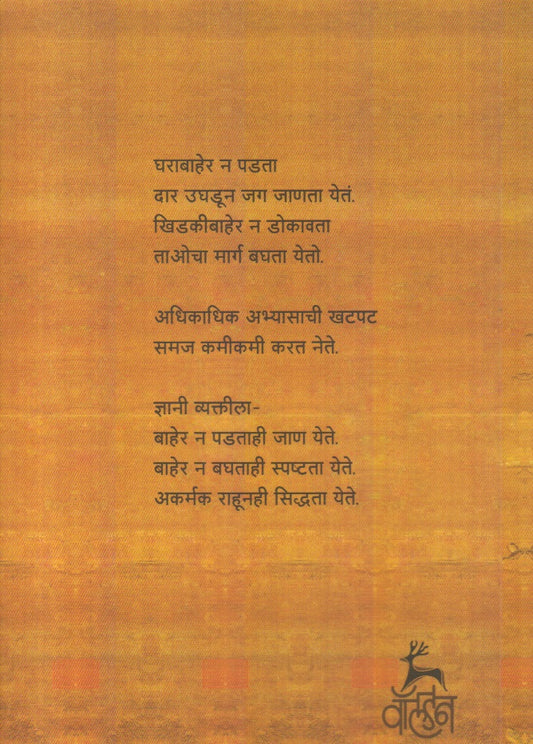 घराबाहेर न पडता
दार उघडून जग जाणता येतं.
खिडकीबाहेर न डोकावता
ताओचा मार्ग बघता येतो.
अधिकाधिक अभ्यासाची खटपट
समज कमीकमी करत नेते.
ज्ञानी व्यक्तीला-
बाहेर न पडताही जाण येते.
बाहेर न बघताही स्पष्टता येते.
अकर्मक राहूनही सिद्धता येते.
वॉल्डन